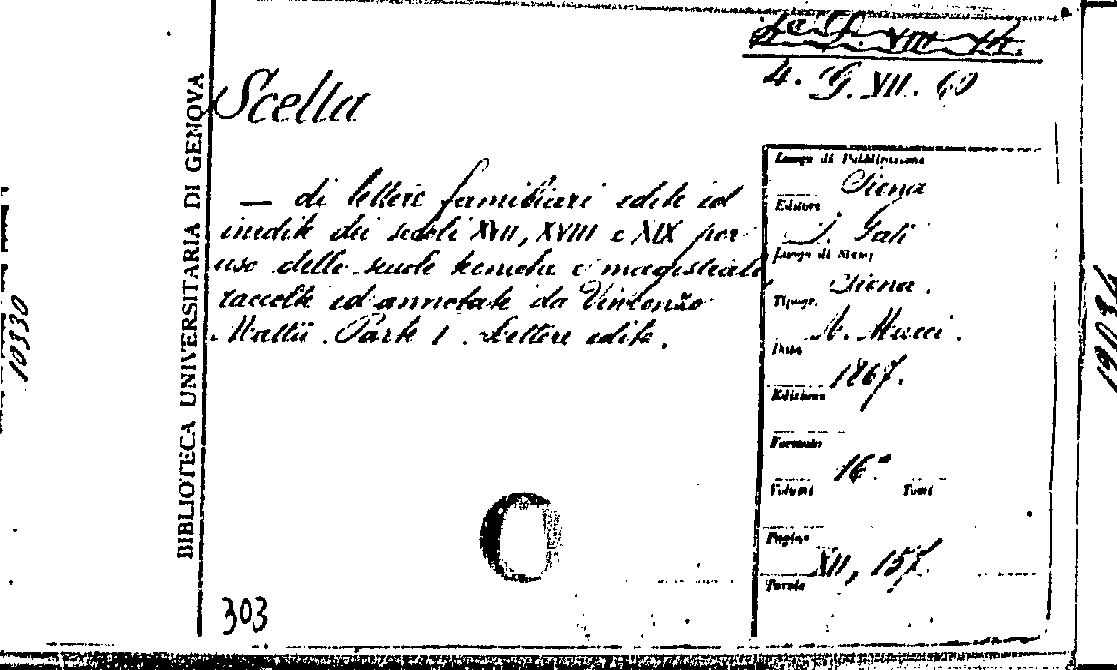 4. G. VII. 60
Scelta
— di lettere familiari edite ed
inedite dei secoli XVII, XVIII e XIX per
uso delle scuole tecniche e magistrali
raccolte ed annotate da Vincenzo
Mattii. Parte I. Lettere edite.
BIBLIOTECA UNIVERSITARIA DI GENOVA
Luogo di Pubblicazione
Siena
Editore
Gati
Luogo di Stamp.
Siena.
Tipogr.
A. Mucci.
Data
1867.
Edizione
Formato
16°
Volumi Tomi
Pagine
XII, 157.
Tavole
303
10330